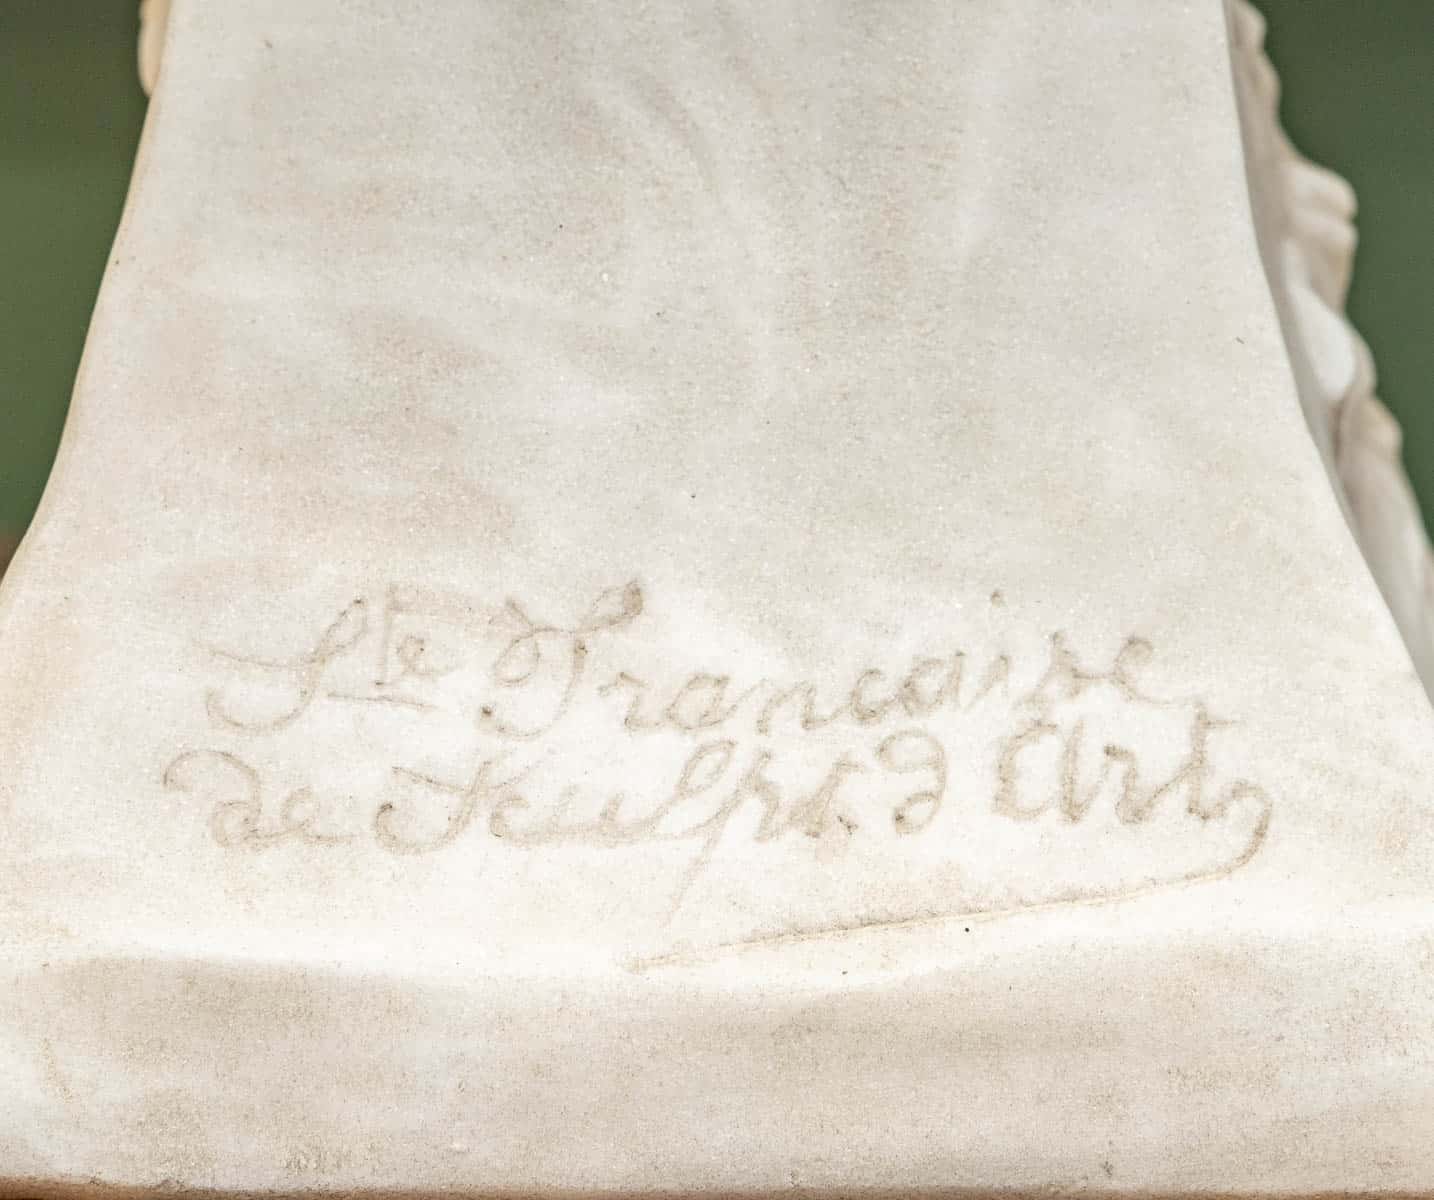 Ste Francaise
de Sculpt. d'Art